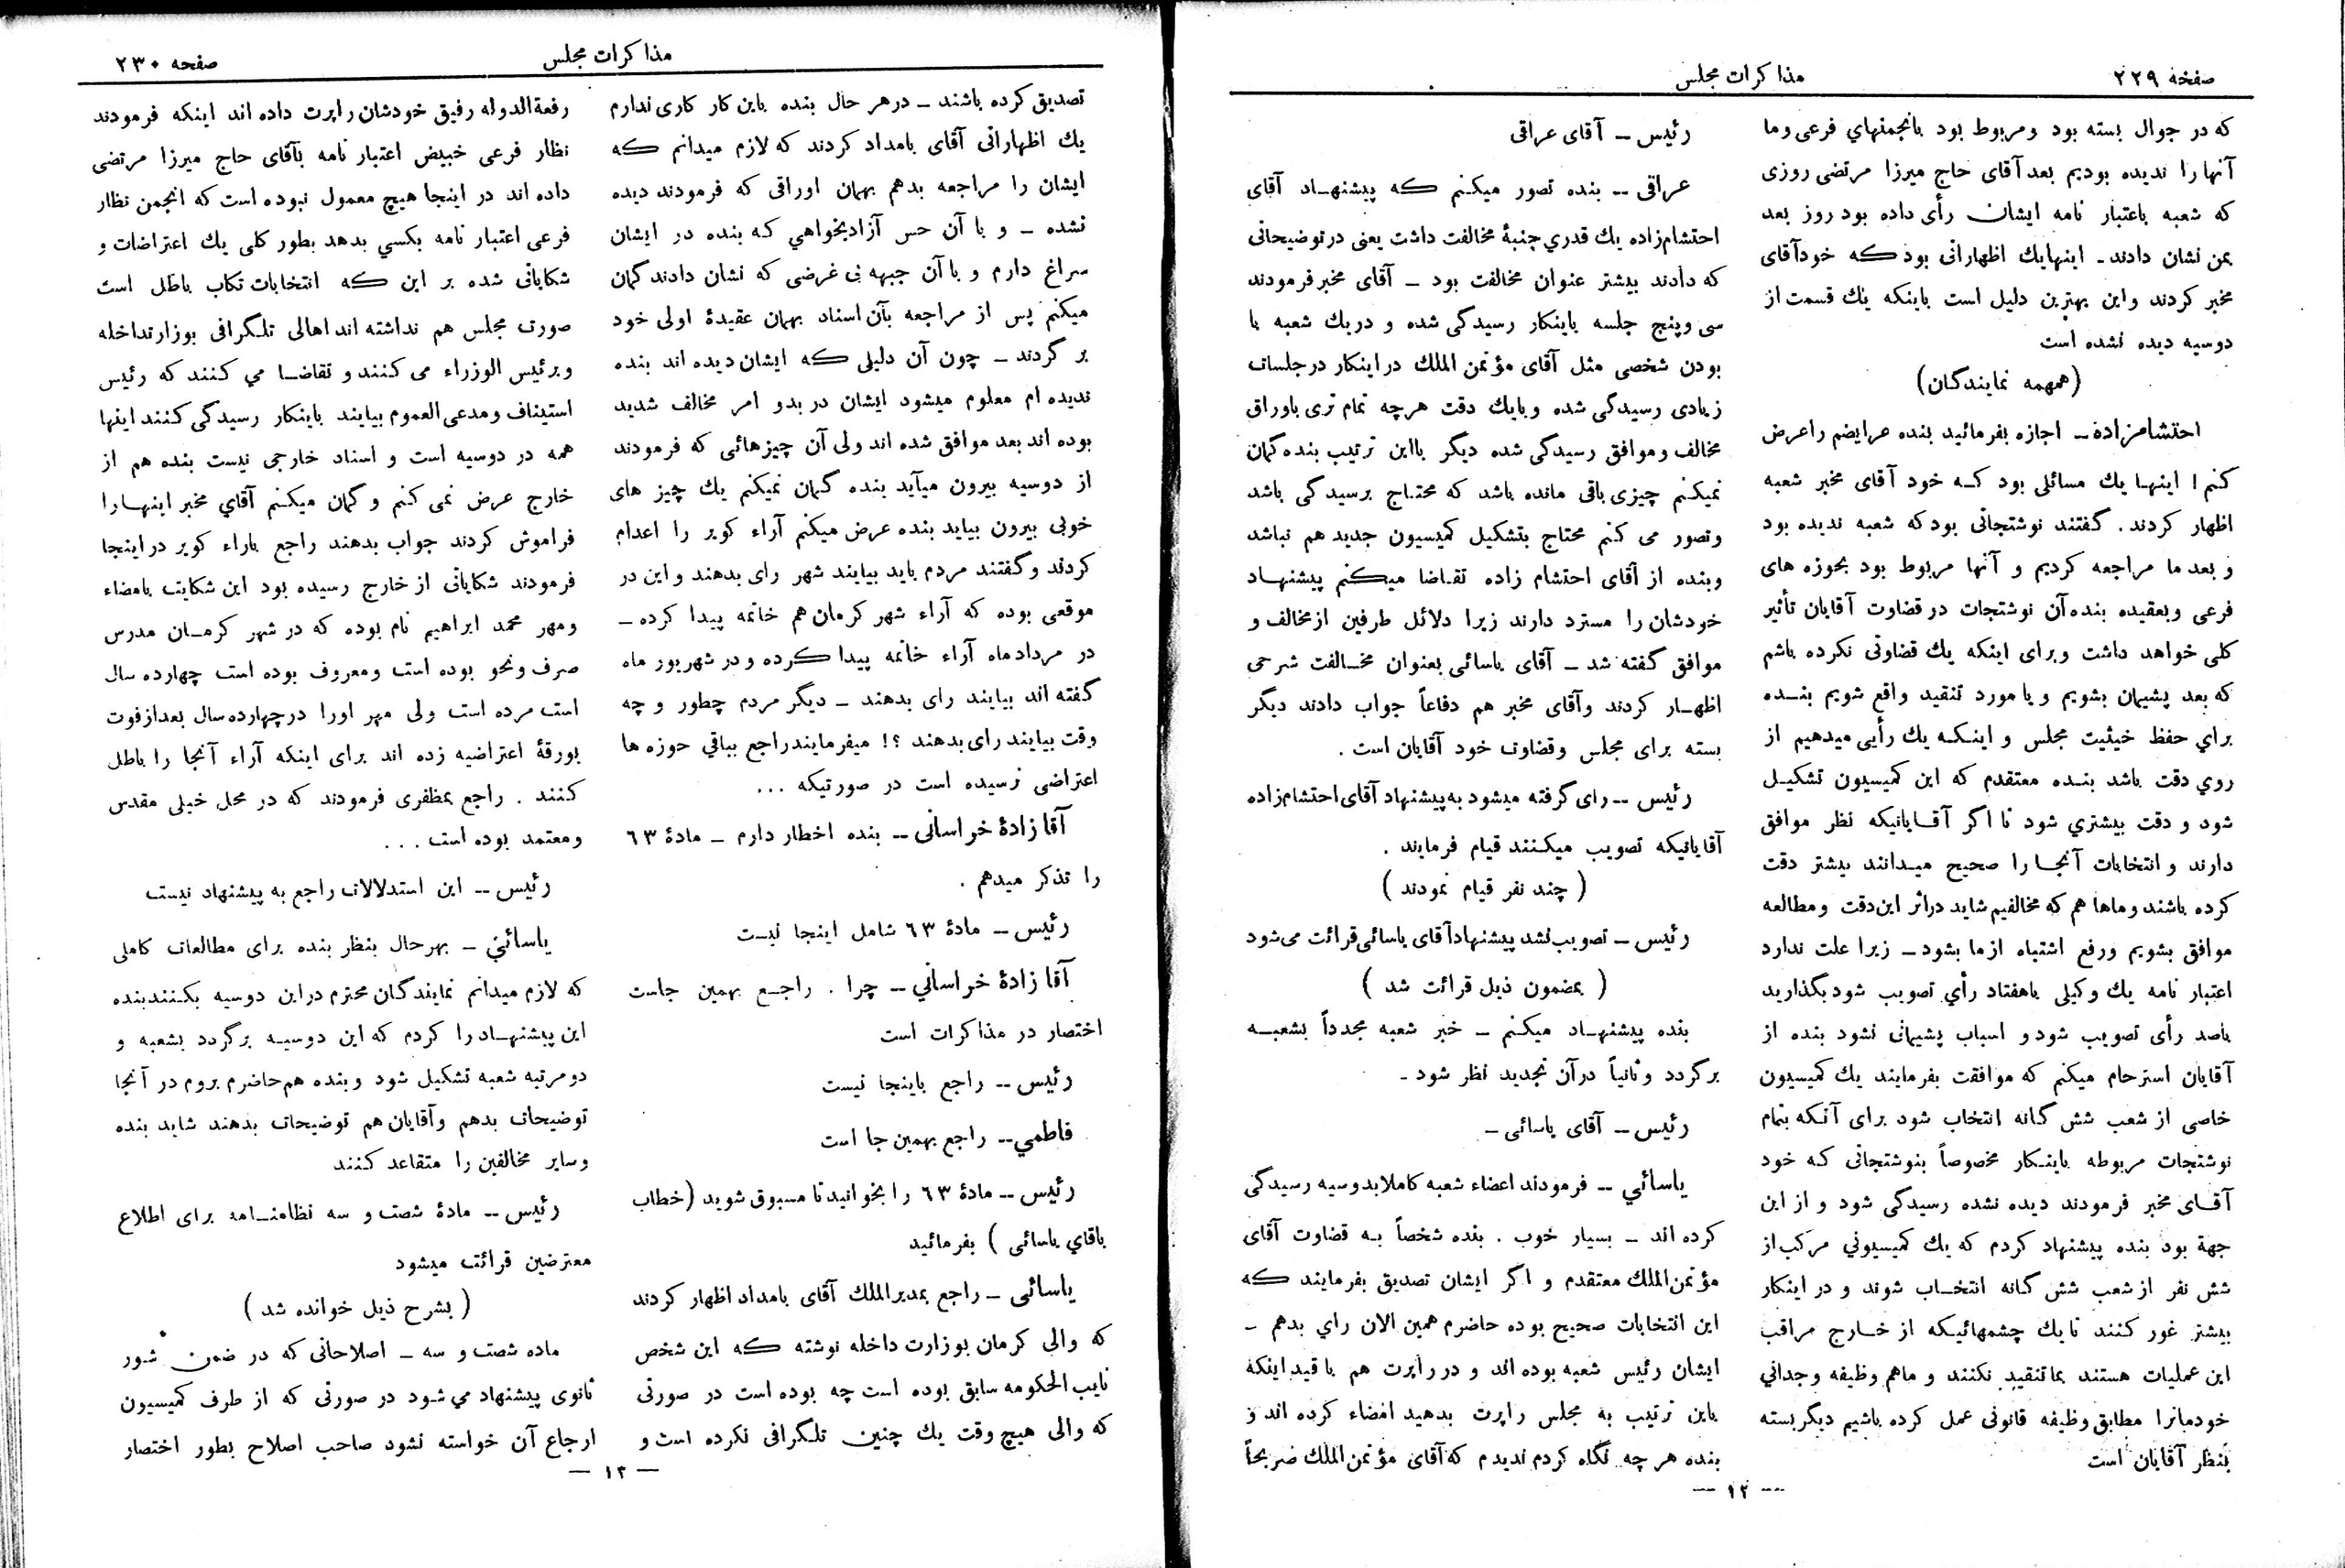 صفحه ۲۲۹
مذاکرات مجلس
که در جوال بسته بود ومربوط بود بانجمنهاي فرعی وما
آنها را ندیده بودیم بعد آقای حاج میرزا مرتضی روزی
که شعبه باعتبار نامه ایشان رأی داده بود روز بعد
بمن نشان دادند ـ اینهایك اظهاراتی بود که خودآقای
مخبر کردند واین بهترین دلیل است باینکه یك قسمت از
دوسیه دیده نشده است
(همهمه نمایندگان)
احتشامزاده ـ اجازه بفرمائید بنده عرایضم راعرض
کنم ! اینها یك مسائلی بود که خود آقای مخبر شعبه
اظهار کردند . گفتند نوشتجاتی بود که شعبه ندیده بود
و بعد ما مراجعه کردیم و آنها مربوط بود بحوزه های
فرعی وبعقیده بنده آن نوشتجات در قضاوت آقایان تأثیر
کلی خواهد داشت وبرای اینکه یك قضاوتی نکرده باشم
که بعد پشیمان بشویم و یا مورد تنقید واقع شویم بنده
براي حفظ حیثیت مجلس و اینکه یك رأیی میدهیم از
روي دقت باشد بنده معتقدم که این کمیسیون تشکیل
شود و دقت بیشتري شود تا اگر آقایانیکه نظر موافق
دارند و انتخابات آنجا را صحیح میدانند بیشتر دقت
کرده باشند وماها هم که مخالفیم شاید دراثر این دقت ومطالعه
موافق بشویم ورفع اشتباه ازما بشود ـ زیرا علت ندارد
اعتبار نامه یك وکیلی باهفتاد رأي تصویب شود بگذارید
باصد رأی تصویب شود و اسباب پشیمانی نشود بنده از
آقایان استرحام میکنم که موافقت بفرمایند یك کمیسیون
خاصی از شعب شش گانه انتخاب شود برای آنکه بتمام
نوشتجات مربوطه باینکار مخصوصاً بنوشتجاتی که خود
آقای مخبر فرمودند دیده نشده رسیدگی شود و از این
جهة بود بنده پیشنهاد کردم که یك کمیسیوني مرکب از
شش نفر از شعب شش گانه انتخاب شوند و در اینکار
بیشتر غور کنند تا یك چشمهائیکه از خارج مراقب
این عملیات هستند بماتنقید نکنند و ماهم وظیفه وجداني
خودمانرا مطابق وظیفه قانونی عمل کرده باشیم دیگر بسته
بنظر آقایان است
رئیس ـ آقای عراقی
عراقی ـ بنده تصور میکنم که پیشنهاد آقای
احتشام زاده یك قدري جنبۀ مخالفت داشت یعنی در توضیحاتی
که دادند بیشتر عنوان مخالفت بود ـ آقای مخبر فرمودند
سی وپنج جلسه باینکار رسیدگی شده و دریك شعبه با
بودن شخصی مثل آقای مؤتمن الملك دراینکار درجلسات
زیادی رسیدگی شده وبایك دقت هرچه تمام تری باوراق
مخالف و موافق رسیدگی شده دیگر بااین ترتیب بنده گمان
نمیکنم چیزی باقی مانده باشد که محتاج برسیدگی باشد
وتصور می کنم محتاج بتشکیل کمیسیون جدید هم نباشد
وبنده از آقای احتشام زاده تقاضا میکنم پیشنهاد
خودشان را مسترد دارند زیرا دلائل طرفین از مخالف و
موافق گفته شد ـ آقای یاسائی بعنوان مخالفت شرحی
اظهار کردند وآقای مخبر هم دفاعاً جواب دادند دیگر
بسته برای مجلس وقضاوت خود آقایان است .
رئیس ـ رای گرفته میشود به پیشنهاد آقای احتشام زاده
آقایانیکه تصویب میکنند قیام فرمایند .
( چند نفر قیام نمودند )
رئیس ـ تصویب نشد پیشنهادآقای یاسائی قرائت می شود
( بمضمون ذیل قرائت شد )
بنده پیشنهاد میکنم ـ خبر شعبه مجدداً بشعبه
برگردد وثانیاً درآن تجدید نظر شود ـ
رئیس ـ آقای یاسائی ـ
یاسائي ـ فرمودند اعضاء شعبه کاملابدوسیه رسیدگی
کرده اند ـ بسیار خوب . بنده شخصاً به قضاوت آقای
مؤتمن الملك معتقدم و اگر ایشان تصدیق بفرمایند که
این انتخابات صحیح بوده حاضرم همین الان راي بدهم ـ
ایشان رئیس شعبه بوده اند و در راپرت هم با قید اینکه
باین ترتیب به مجلس راپرت بدهید امضاء کرده اند و
بنده هر چه نگاه کردم ندیدم که آقای مؤتمن الملك صریحاً
ـ ۱۲ ـ
مذاکرات مجلس
صفحه ۲۳۰
تصدیق کرده باشند ـ درهر حال بنده باین کار کاری ندارم
یك اظهاراتی آقای بامداد کردند که لازم میدانم که
ایشان را مراجعه بدهم بهمان اوراقی که فرمودند دیده
نشده ـ و با آن حس آزادیخواهي که بنده در ایشان
سراغ دارم و با آن جبهه بی غرضی که نشان دادند گمان
میکنم پس از مراجعه بآن اسناد بهمان عقیدۀ اولی خود
بر گردند ـ چون آن دلیلی که ایشان دیده اند بنده
ندیده ام معلوم میشود ایشان در بدو امر مخالف شدید
بوده اند بعد موافق شده اند ولی آن چیزهائی که فرمودند
از دوسیه بیرون میآید بنده گمان نمیکنم یك چیز های
خوبی بیرون بیاید بنده عرض میکنم آراء کویر را اعدام
کردند و گفتند مردم باید بیایند شهر رای بدهند و این در
موقعی بوده که آراء شهر کرمان هم خاتمه پیدا کرده ـ
در مرداد ماه آراء خاتمه پیدا کرده و در شهریور ماه
گفته اند بیایند رای بدهند ـ دیگر مردم چطور و چه
وقت بیایند رای بدهند ؟! میفرمایند راجع بباقي حوزه ها
اعتراضی نرسیده است در صورتیکه ...
آقا زادۀ خراسانی ـ بنده اخطار دارم ـ مادۀ ۶۳
را تذکر میدهم .
رئیس ـ مادۀ ۶۳ شامل اینجا نیست
آقا زادۀ خراساني ـ چرا . راجع بهمین جاست
اختصار در مذاکرات است
رئیس ـ راجع باینجا نیست
فاطمي ـ راجع بهمین جا است
رئیس ـ مادۀ ۶۳ را بخوانید تا مسبوق شوید (خطاب
باقاي یاسائی ) بفرمائید
یاسائی ـ راجع بمدبرالملك آقای بامداد اظهار کردند
که والی کرمان بوزارت داخله نوشته که این شخص
نایب الحکومه سابق بوده است چه بوده است در صورتی
که والی هیچ وقت یك چنین تلگرافی نکرده است و
رفعة الدوله رفیق خودشان راپرت داده اند اینکه فرمودند
نظار فرعی خبیص اعتبار نامه بآقای حاج میرزا مرتضی
داده اند در اینجا هیچ معمول نبوده است که انجمن نظار
فرعی اعتبار نامه بکسي بدهد بطور کلی یك اعتراضات و
شکایاتی شده بر این که انتخابات تکاب باطل است
صورت مجلس هم نداشته اند اهالی تلگرافی بوزارت داخله
وبرئیس الوزراء می کنند و تقاضا مي کنند که رئیس
استیناف ومدعی العموم بیایند باینکار رسیدگی کنند اینها
همه در دوسیه است و اسناد خارجی نیست بنده هم از
خارج عرض نمی کنم و گمان میکنم آقاي مخبر اینهارا
فراموش کردند جواب بدهند راجع باراء کویر در اینجا
فرمودند شکایاتی از خارج رسیده بود این شکایت بامضاء
ومهر محمد ابراهیم نام بوده که در شهر کرمان مدرس
صرف ونحو بوده است ومعروف بوده است چهارده سال
است مرده است ولی مهر اورا درچهارده سال بعد از فوت
بورقۀ اعتراضیه زده اند برای اینکه آراء آنجا را باطل
کنند . راجع بمظفری فرمودند که در محل خیلی مقدس
ومعتمد بوده است ...
رئیس ـ این استدلالات راجع به پیشنهاد نیست
یاسائي ـ بهرحال بنظر بنده برای مطالعات کاملی
که لازم میدانم نمایندگان محترم دراین دوسیه بکنند بنده
این پیشنهاد را کردم که این دوسیه برگردد بشعبه و
دو مرتبه شعبه تشکیل شود وبنده هم حاضرم بروم در آنجا
توضیحات بدهم وآقایان هم توضیحات بدهند شاید بنده
وسایر مخالفین را متقاعد کنند
رئیس ـ مادۀ شصت و سه نظامنامه برای اطلاع
معترضین قرائت میشود
( بشرح ذیل خوانده شد )
ماده شصت و سه ـ اصلاحاتی که در ضمن شور
ثانوی پیشنهاد می شود در صورتی که از طرف کمیسیون
ارجاع آن خواسته نشود صاحب اصلاح بطور اختصار
ـ ۱۳ ـ